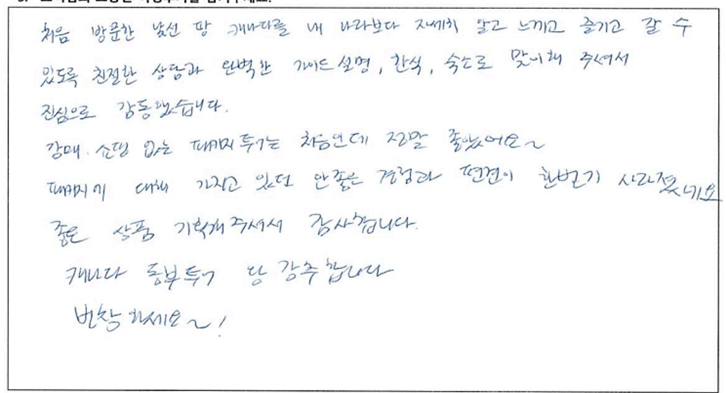 처음 방문한 낯선 땅 캐나다를 내 나라보다 자세히 알고 느끼고 즐기고 갈 수
있도록 친절한 상담과 완벽한 가이드 설명, 한식, 숙소로 맞이해 주셔서
진심으로 감동했습니다.
강매. 쇼핑 없는 패키지 투어는 처음인데 정말 좋았어요~
패키지에 대해 가지고 있던 안좋은 경험과 편견이 한번에 사라졌네요
좋은 상품 기획해주셔서 감사합니다.
캐나다 동부투어 강추합니다
번창하세요~!